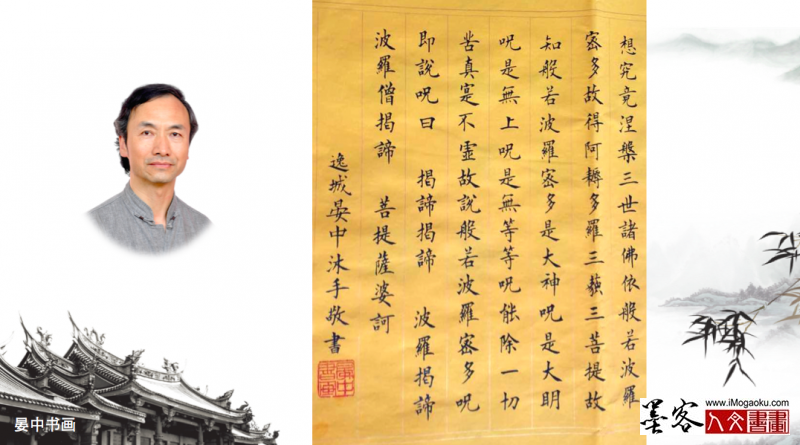 想究竟涅槃三世諸佛依般若波羅
密多故得阿耨多羅三藐三菩提故
知般若波羅密多是大神呪是大明
呪是無上呪是無等等呪能除一切
苦真寔不虛故說般若波羅密多呪
即說呪曰 揭諦揭諦 波羅揭諦
波羅僧揭諦 菩提薩婆訶
逸城晏中沐手敬書
晏中书画
www.iMogaoku.com
墨客
人文書畫